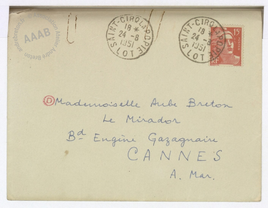 AAAB
SAINT-CIRQ-LAPOPIE
18 *
24 - 8
1951
LOT
SAINT-CIRQ-LAPOPIE
18 *
24 - 8
1951
LOT
Mademoiselle Aube Breton
Le Mirador
Bd Eugène Gazagnaire
CANNES
A. Mar.